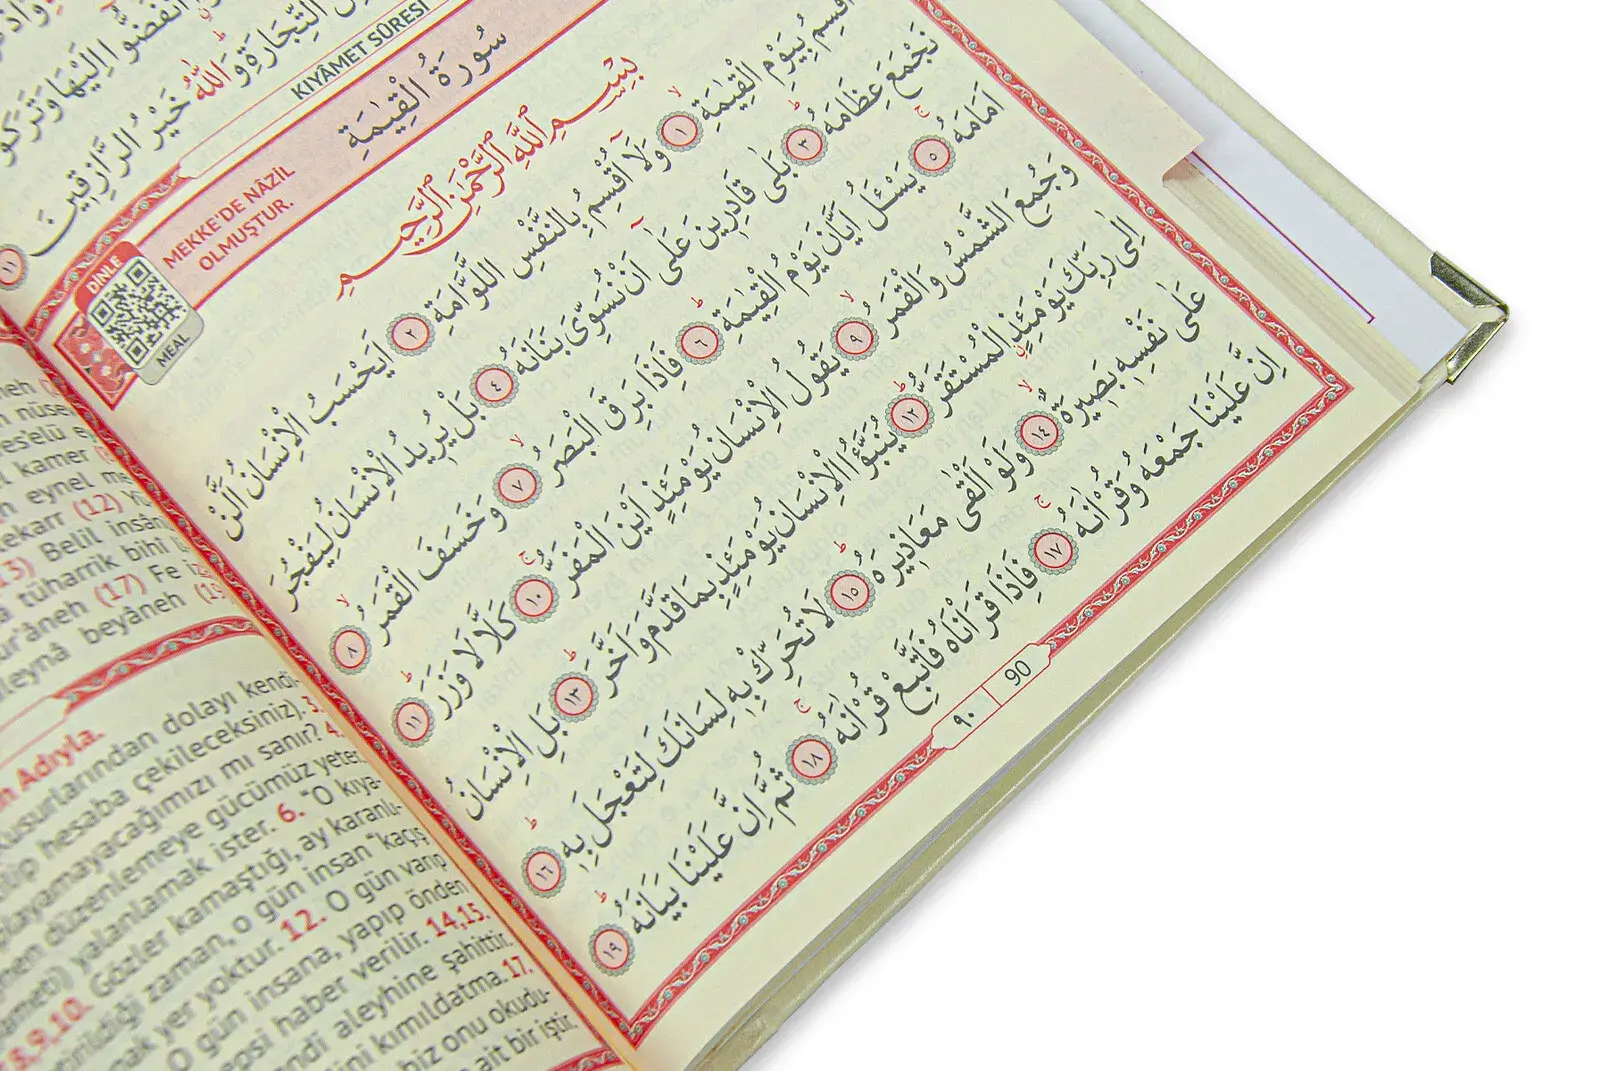 انْفَضُّوا اِلَيْهَا وَتَرَكُو
التِّجَارَةِ وَاللّٰهُ خَيْرُ الرَّازِقِينَ ١١
KIYÂMET SÛRESİ
سُورَةُ الْقِيٰمَةِ
MEKKE'DE NÂZİL
OLMUŞTUR.
DİNLE
MEAL
بِسْمِ اللّٰهِ الرَّحْمٰنِ الرَّحِيمِ
اُقْسِمُ بِيَوْمِ الْقِيٰمَةِ ١ وَلَٓا اُقْسِمُ بِالنَّفْسِ اللَّوَّامَةِ ٢ اَيَحْسَبُ الْاِنْسَانُ اَلَّنْ
نَجْمَعَ عِظَامَهُ ٣ بَلٰى قَادِرِينَ عَلٰٓى اَنْ نُسَوِّىَ بَنَانَهُ ٤ بَلْ يُرِيدُ الْاِنْسَانُ لِيَفْجُرَ
اَمَامَهُ ٥ يَسْـَٔلُ اَيَّانَ يَوْمُ الْقِيٰمَةِ ٦ فَاِذَا بَرِقَ الْبَصَرُ ٧ وَخَسَفَ الْقَمَرُ ٨
وَجُمِعَ الشَّمْسُ وَالْقَمَرُ ٩ يَقُولُ الْاِنْسَانُ يَوْمَئِذٍ اَيْنَ الْمَفَرُّ ١٠ كَلَّا لَا وَزَرَ ١١
اِلٰى رَبِّكَ يَوْمَئِذٍ الْمُسْتَقَرُّ ١٢ يُنَبَّؤُا الْاِنْسَانُ يَوْمَئِذٍ بِمَا قَدَّمَ وَاَخَّرَ ١٣ بَلِ الْاِنْسَانُ
عَلٰى نَفْسِهِ بَصِيرَةٌ ١٤ وَلَوْ اَلْقٰى مَعَاذِيرَهُ ١٥ لَا تُحَرِّكْ بِهِ لِسَانَكَ لِتَعْجَلَ بِهِ ١٦
اِنَّ عَلَيْنَا جَمْعَهُ وَقُرْاٰنَهُ ١٧ فَاِذَا قَرَاْنَاهُ فَاتَّبِعْ قُرْاٰنَهُ ١٨ ثُمَّ اِنَّ عَلَيْنَا بَيَانَهُ ١٩
٩٠ 90
kamer
eynel
(12)
13) Belil
tüharrik bihî
(17) Fe
aleynâ beyâneh
Adıyla.
kusurlarından dolayı kendi-
hesaba çekileceksiniz). 3.
toplayamayacağımızı mı sanır? 4.
düzenlemeye gücümüz yeter.
yalanlamak ister. 6. "O kıya-
8,9,10. Gözler kamaştığı, ay karanlı-
zaman, o gün insan "kaçış
yer yoktur. 12. O gün varıp
O gün insana, yapıp önden
haber verilir. 14,15.
aleyhine şahittir.
kımıldatma. 17.
biz onu okudu-
ait bir iştir.